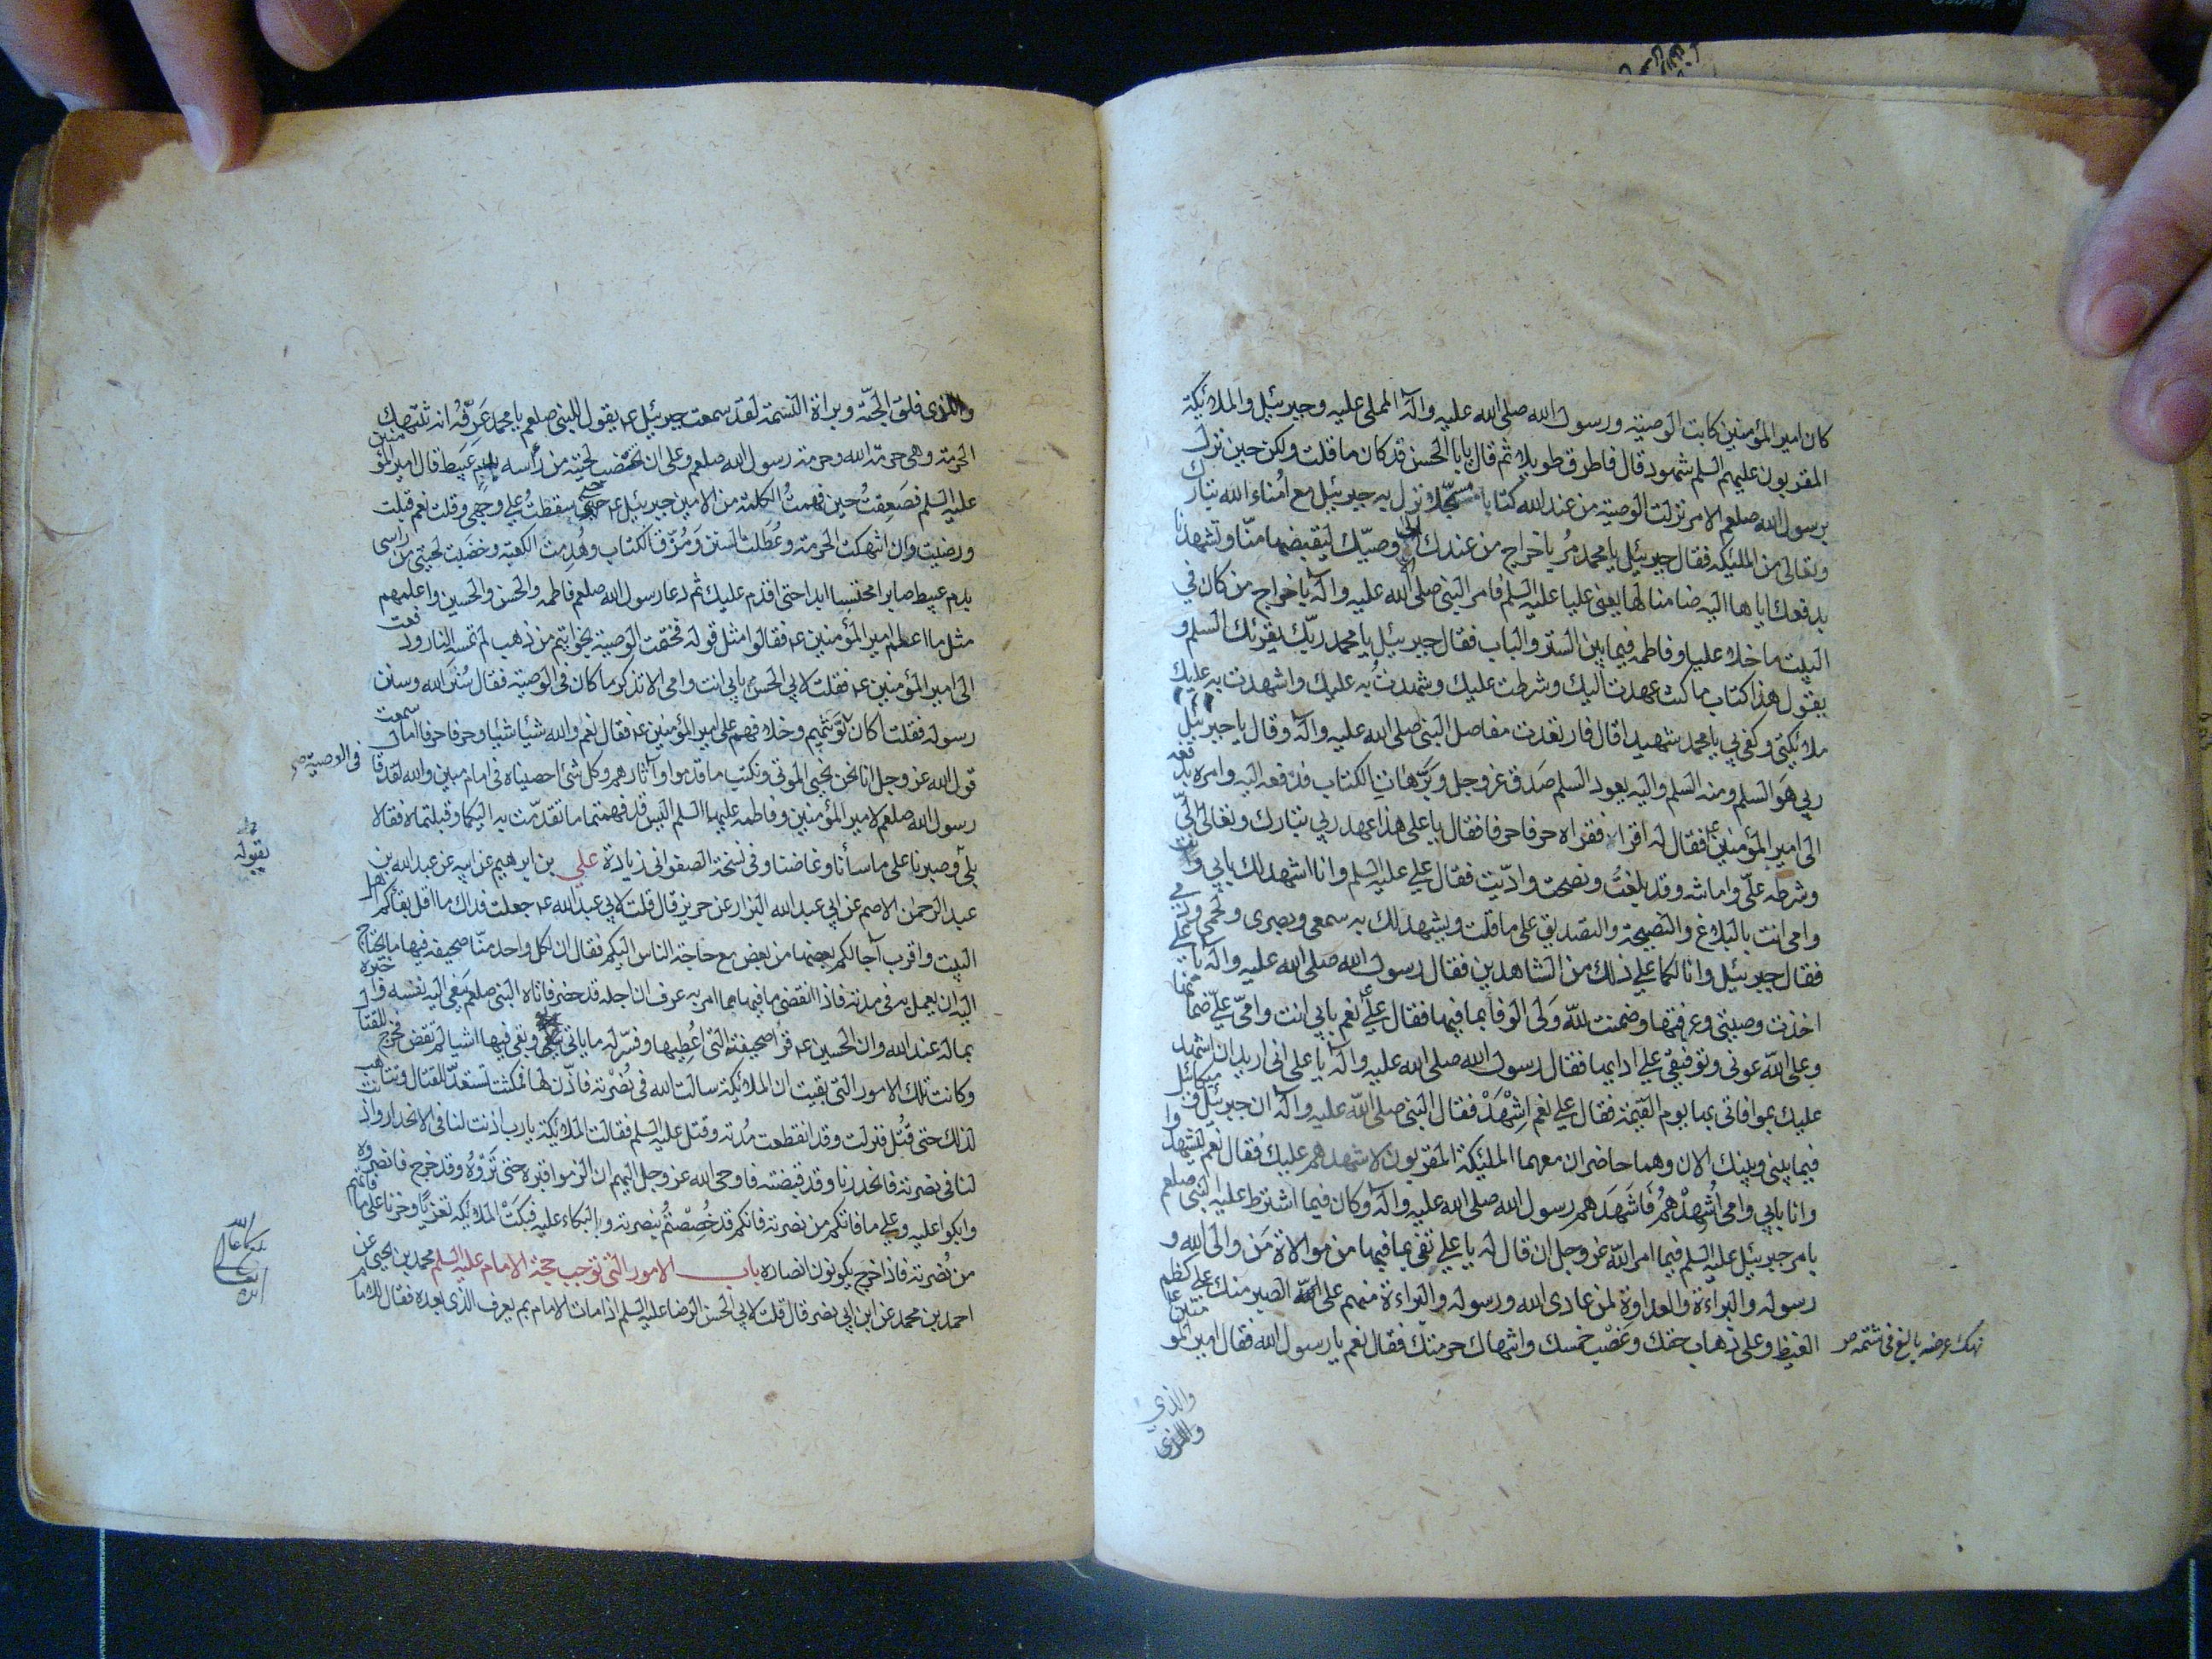 كان امير المؤمنين كاتب الوصية ورسول الله صلى الله عليه وآله المملى عليه وجبرئيل والملائكة
المقربون عليهم السلم شهود قال فاطرق طويلا ثم قال يابا الحسن قد كان ما قلت ولكن حين نزل
برسول الله صلعم الامر نزلت الوصية من عند الله كتابا مسجلا نزل به جبرئيل مع امناء الله تبارك
وتعالى من الملئكة فقال جبرئيل يا محمد مر باخراج من عندك الا وصيك ليقبضها منا وتشهدنا
بدفعك اياها اليه ضامنا لها يعنى عليا عليه السلم فامر النبى صلى الله عليه وآله باخراج من كان في
البيت ما خلا عليا وفاطمه فيما بين الستر والباب فقال جبرئيل يا محمد ربك يقرئك السلم و
يقول هذا كتاب ما كنت عهدت اليك وشرطت عليك وشهدت به عليك واشهدت به عليك
ملائكتى وكفى بى يا محمد شهيدا قال فارتعدت مفاصل النبى صلى الله عليه وآله وقال يا جبرئيل
ربى هو السلم ومنه السلم واليه يعود السلم صدق عز وجل وبر هات الكتاب فدفعه اليه وامره بدفعه
الى امير المؤمنين ع فقال له اقراه فقراه حرفا حرفا فقال يا على هذا عهد ربى تبارك وتعالى الى
وشرطه على وامانته وقد بلغت ونصحت واديت فقال على عليه السلم وانا اشهد لك بابى وانت
وامى انت بالبلاغ والنصيحة والتصديق على ما قلت ويشهد لك به سمعى وبصرى ولحمى ودمى
فقال جبرئيل وانا لكما على ذلك من الشاهدين فقال رسول الله صلى الله عليه وآله يا على
اخذت وصيتى وعرفتها وضمنت لله ولى الوفا بما فيها فقال على نعم بابى انت وامى على ضمانها
وعلى الله عونى وتوفيقى على ادايها فقال رسول الله صلى الله عليه وآله يا على انى اريد ان اشهد
عليك بموافاتى بها يوم القيمة فقال على نعم اشهد فقال النبى صلى الله عليه وآله ان جبرئيل وميكائيل
فيما بينى وبينك الان وهما حاضران معهما الملئكة المقربون لاشهدهم عليك فقال نعم ليشهدوا
وانا بابى وامى اشهدهم فاشهدهم رسول الله صلى الله عليه وآله وكان فيما اشترط عليه النبى صلعم
بامر جبرئيل عليه السلم فيما امر الله عز وجل ان قال له يا على تفى بما فيها من موالاة من والى الله و
رسوله والبراءة والعداوة لمن عادى الله ورسوله والبراءة منهم على الصبر منك على كظم
الغيظ وعلى ذهاب حقك وغصب خمسك وانتهاك حرمتك فقال نعم يا رسول الله فقال امير المؤمنين ع
نهك عرضه بالغ فى شتمه ص
والذي
والذى
والذى فلق الحبة وبراة النسمة لقد سمعت جبرئيل ع يقول للنبى صلعم يا محمد عرفه انه تنتهك
الحرمة وهى حرمة الله وحرمة رسول الله صلعم وعلى ان تخضب لحيته من رأسه بدم عبيط قال امير المؤمنين
عليه السلم فصعقت حين فهمت الكلمة من الامين جبرئيل ع حتى سقطت على وجهى وقلت نعم قبلت
ورضيت وان انتهكت الحرمة وعطلت السنن ومزق الكتاب وهدمت الكعبة وخضبت لحيتى من راسى
بدم عبيط صابرا محتسبا ابدا حتى اقدم عليك ثم دعا رسول الله صلعم فاطمه والحسن والحسين واعلمهم
مثل ما اعلم امير المؤمنين ع فقالوا مثل قوله فختمت الوصية بخواتيم من ذهب لم تمسه النار ودفعت
الى امير المؤمنين ع فقلت لابى الحسن بابى انت وامى الا تذكر ما كان فى الوصية فقال سنن الله وسنن
رسوله فقلت اكان توثبهم وخلافهم على امير المؤمنين ع فقال نعم والله شيئا شيئا وحرفا حرفا اما سمعت
فى الوصية ص
قول الله عز وجل انا نحن نحيى الموتى ونكتب ما قدموا وآثارهم وكل شئ احصيناه فى امام مبين والله لقد قال
رسول الله صلعم لامير المؤمنين وفاطمه عليهما السلم اليس قد فهمتما ما تقدمت به اليكما وقبلتماه فقالا
بلى وصبرنا على ما سأنا وغاضنا وفى نسخة الصفوانى زيادة على بن ابرهيم عن ابيه عن عبد الله بن
بقوله
عبد الرحمن الاصم عن ابى عبد الله البزار عن حريز قال قلت لابى عبد الله ع جعلت فداك ما اقل بقاءكم اهل
البيت واقرب آجالكم بعضها من بعض مع حاجة الناس اليكم فقال ان لكل واحد منا صحيفة فيها ما يحتاج
اليه ان يعمل به فى مدته فاذا انقضى ما فيها مما امر به عرف ان اجله قد حضر فاتاه النبى صلعم ينعى اليه نفسه واخبره
بما له عند الله وان الحسين ع قرأ صحيفته التى اعطيها وفسر له ما ياتى وبقى فيها اشيا لم تقض فخرج للقتال
وكانت تلك الامور التى بقيت ان الملائكة سالت الله فى نصرته فاذن لها فمكثت تستعد للقتال وتتاهب
لذلك حتى قتل فنزلت وقد انقطعت مدته وقتل عليه السلم فقالت الملائكة يا رب اذنت لنا فى الانحدار واذنت
لنا فى نصرته فانحدرنا وقد قبضته فاوحى الله عز وجل اليهم ان الزموا قبره حتى تروه وقد خرج فانصروه
وابكوا عليه وعلى ما فاتكم من نصرته فانكم قد خصصتم بنصرته وبالبكاء عليه فبكت الملائكة تعزيا وحزنا على ما فاتهم
من نصرته فاذا خرج يكونون انصاره باب الامور التى توجب حجة الامام عليه السلم محمد بن يحيى عن
احمد بن محمد عن ابن ابى نصر قال قلت لابى الحسن الرضا عليه السلم اذا مات الامام بم يعرف الذى بعده فقال للامام